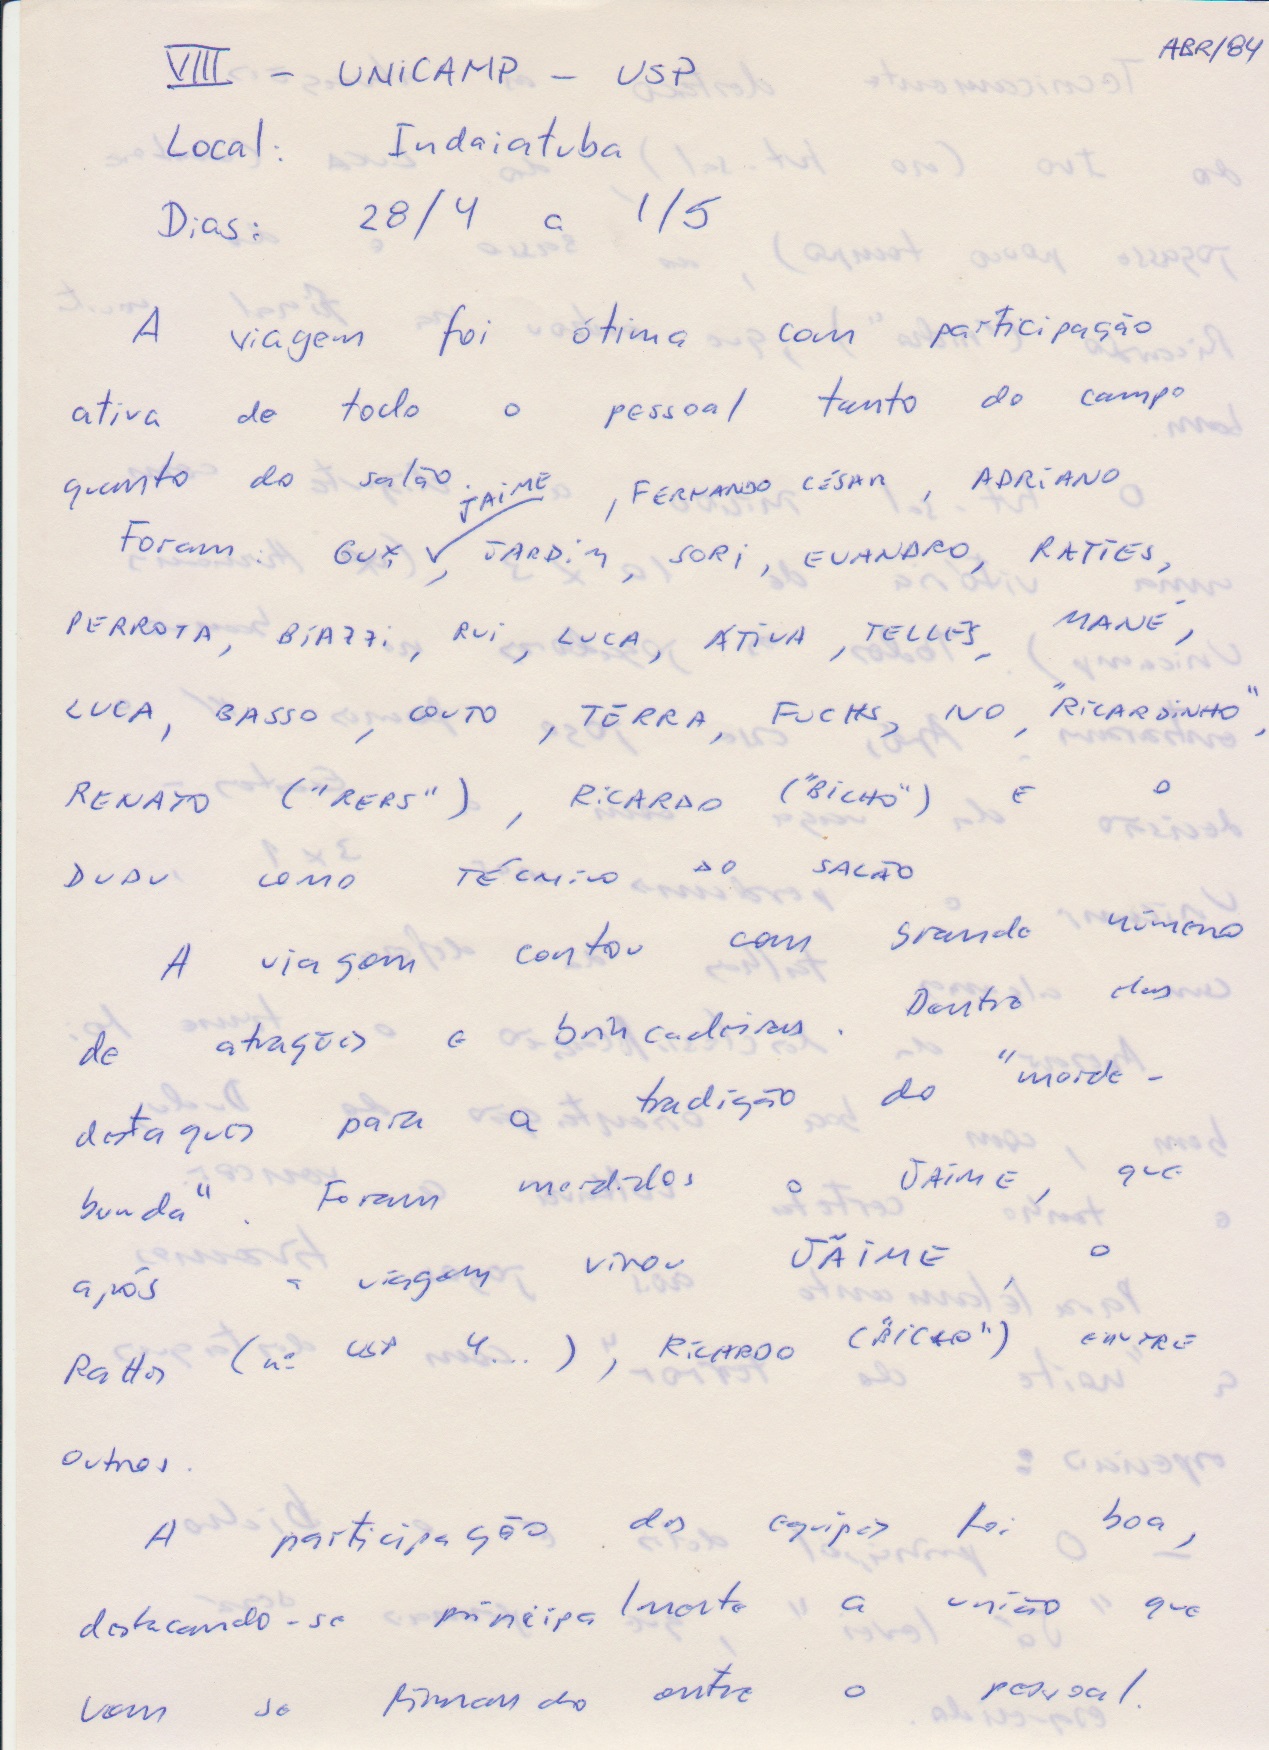 ABR/84
VIII - UNICAMP - USP
Local: Indaiatuba
Dias: 28/4 a 1/5
A viagem foi ótima com participação
ativa de todo o pessoal tanto do campo
quanto do salão.
JAIME , FERNANDO CÉSAR , ADRIANO
Foram: GUX, JARDIM, SORI, EVANDRO, RATTES,
PERROTA, BIAZZI, RUI, LUCA, ÁTIVA, TELLES, MANÉ,
LUCA, BASSO, COUTO, TERRA, FUCHS, IVO, "RICARDINHO",
RENATO ("RERS"), RICARDO ("BICHO") E O
DUDU COMO TÉCNICO DO SALÃO
A viagem contou com grande número
de atrações e brincadeiras. Dentre elas
destaques para a tradição do "morde-
bunda". Foram mordidos o JAIME, que
após a viagem virou JÃIME, o
Rattes (nº USP 4...), RICARDO ("BICHO") ENTRE
outros.
A participação das equipes foi boa,
destacando-se principalmente a união que
vem se firmando entre o pessoal.